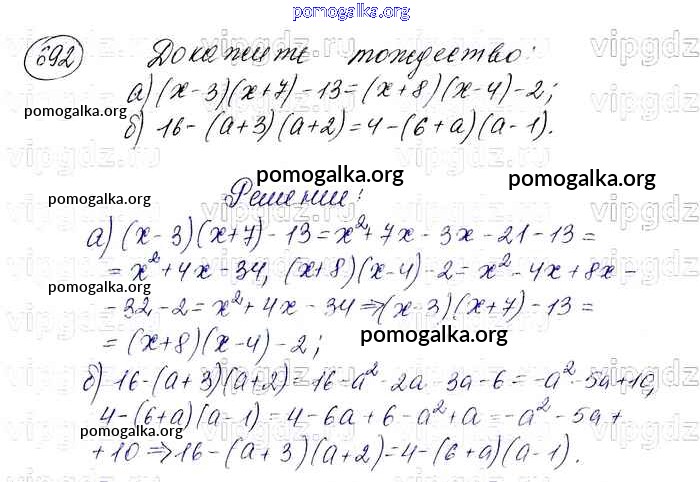 pomogalka.org
692 Докажите тождество:
а) (x-3)(x+7)-13=(x+8)(x-4)-2;
pomogalka.org
б) 16-(a+3)(a+2)=4-(6+a)(a-1).
vipgdz.ru
pomogalka.org
pomogalka.org
pomogalka.org
Решение:
а) (x-3)(x+7)-13=x²+7x-3x-21-13=
=x²+4x-34, (x+8)(x-4)-2=x²-4x+8x-
pomogalka.org
-32-2=x²+4x-34⇒(x-3)(x+7)-13=
=(x+8)(x-4)-2;
pomogalka.org
б) 16-(a+3)(a+2)=16-a²-2a-3a-6=-a²-5a+10,
4-(6+a)(a-1)=4-6a+6-a²+a=-a²-5a+
pomogalka.org
+10⇒16-(a+3)(a+2)=4-(6+a)(a-1).